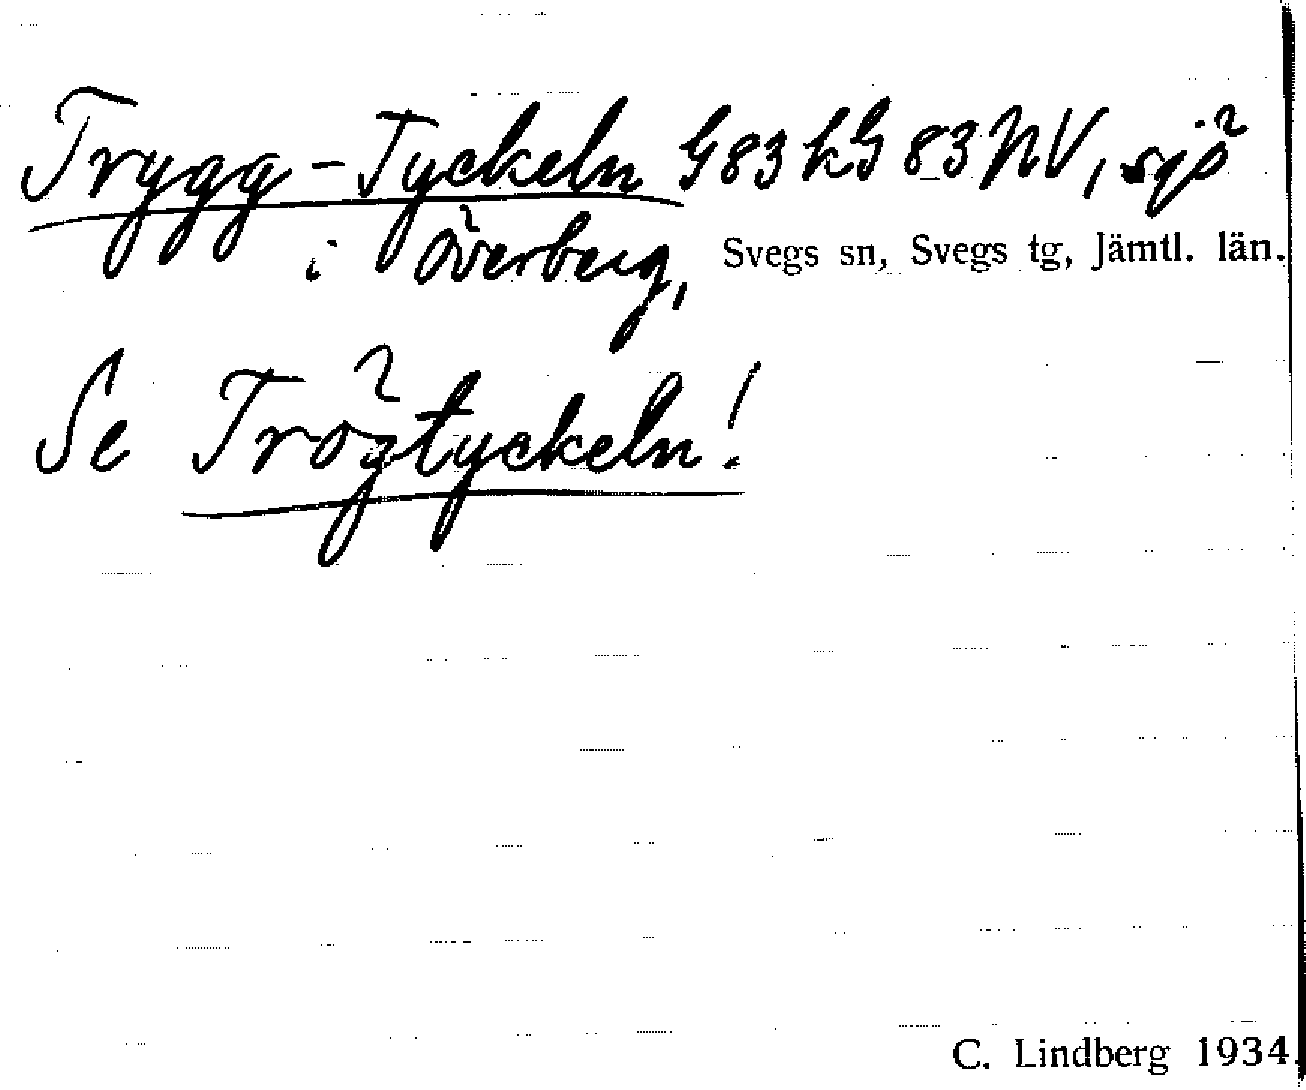 Trygg-Tyckeln G83 kG 83 NV, sjö
i Överberg, Svegs sn, Svegs tg, Jämtl. län.
Se Trögtyckeln!
C. Lindberg 1934.